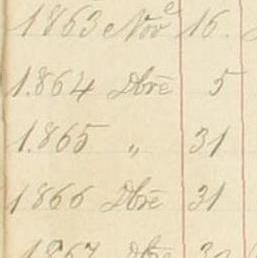 1863 Nov.e 16.
1864 Dbrē 5
1865 „ 31
1866 Dbrē 31
1867 Dbrē 30